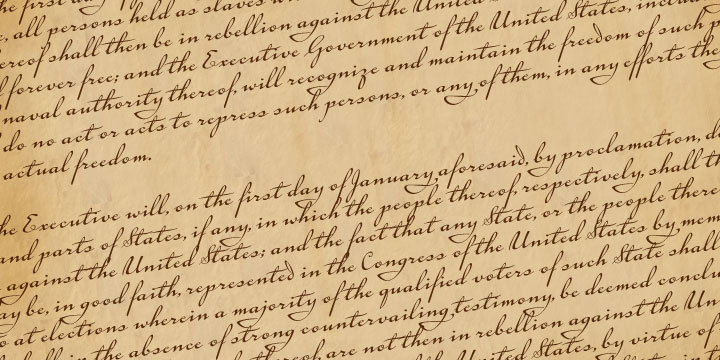 the first day
, all persons held as slaves
ereof shall then be in rebellion against the United
forever free; and the Executive Government of the United States,
naval authority thereof, will recognize and maintain the freedom of such
do no act or acts to repress such persons, or any of them, in any efforts they
actual freedom.
he Executive will, on the first day of January aforesaid, by proclamation,
and parts of States, if any, in which the people thereof, respectively, shall
against the United States; and the fact that any State, or the people there
ay be, in good faith, represented in the Congress of the United States by mem
at elections wherein a majority of the qualified voters of such State shall
in the absence of strong countervailing testimony, be deemed conclu
thereof, are not then in rebellion against the Un
United States, by virtue of